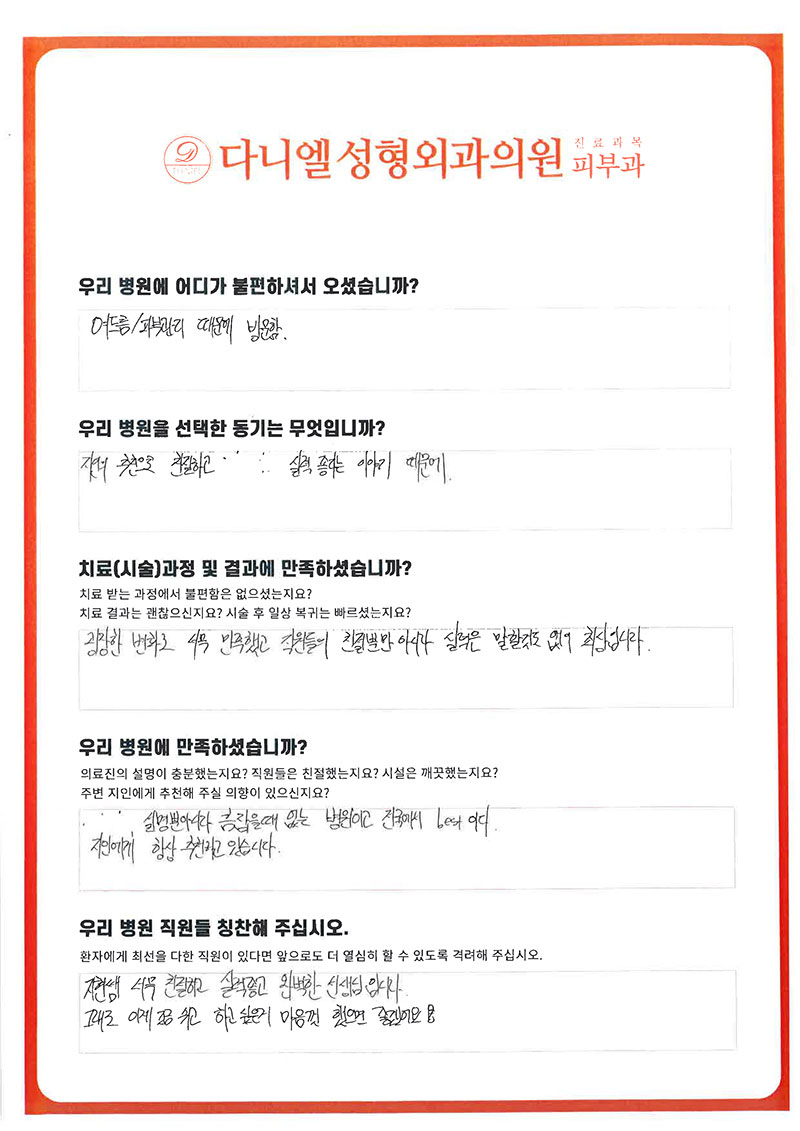 다니엘성형외과의원 진료과목 피부과
우리 병원에 어디가 불편하셔서 오셨습니까?
여드름/피부관리 때문에 방문함.
우리 병원을 선택한 동기는 무엇입니까?
자녀 추천으로 친절하고 실력 좋다는 이야기 때문에.
치료(시술)과정 및 결과에 만족하셨습니까?
치료 받는 과정에서 불편함은 없으셨는지요?
치료 결과는 괜찮으신지요? 시술 후 일상 복귀는 빠르셨는지요?
굉장한 변화로 너무 만족했고 직원들의 친절뿐만 아니라 실력은 말할것도 없이 최상입니다.
우리 병원에 만족하셨습니까?
의료진의 설명이 충분했는지요? 직원들은 친절했는지요? 시설은 깨끗했는지요?
주변 지인에게 추천해 주실 의향이 있으신지요?
설명뿐아니라 흠잡을때 없는 병원이고 전국에서 best 이다.
지인에게 항상 추천하고 있습니다.
우리 병원 직원들 칭찬해 주십시오.
환자에게 최선을 다한 직원이 있다면 앞으로도 더 열심히 할 수 있도록 격려해 주십시오.
너무 친절하고 실력좋고 완벽한 선생님입니다.
그대로 이제 푹 쉬고 하고 싶은거 마음껏 했으면 좋겠어요